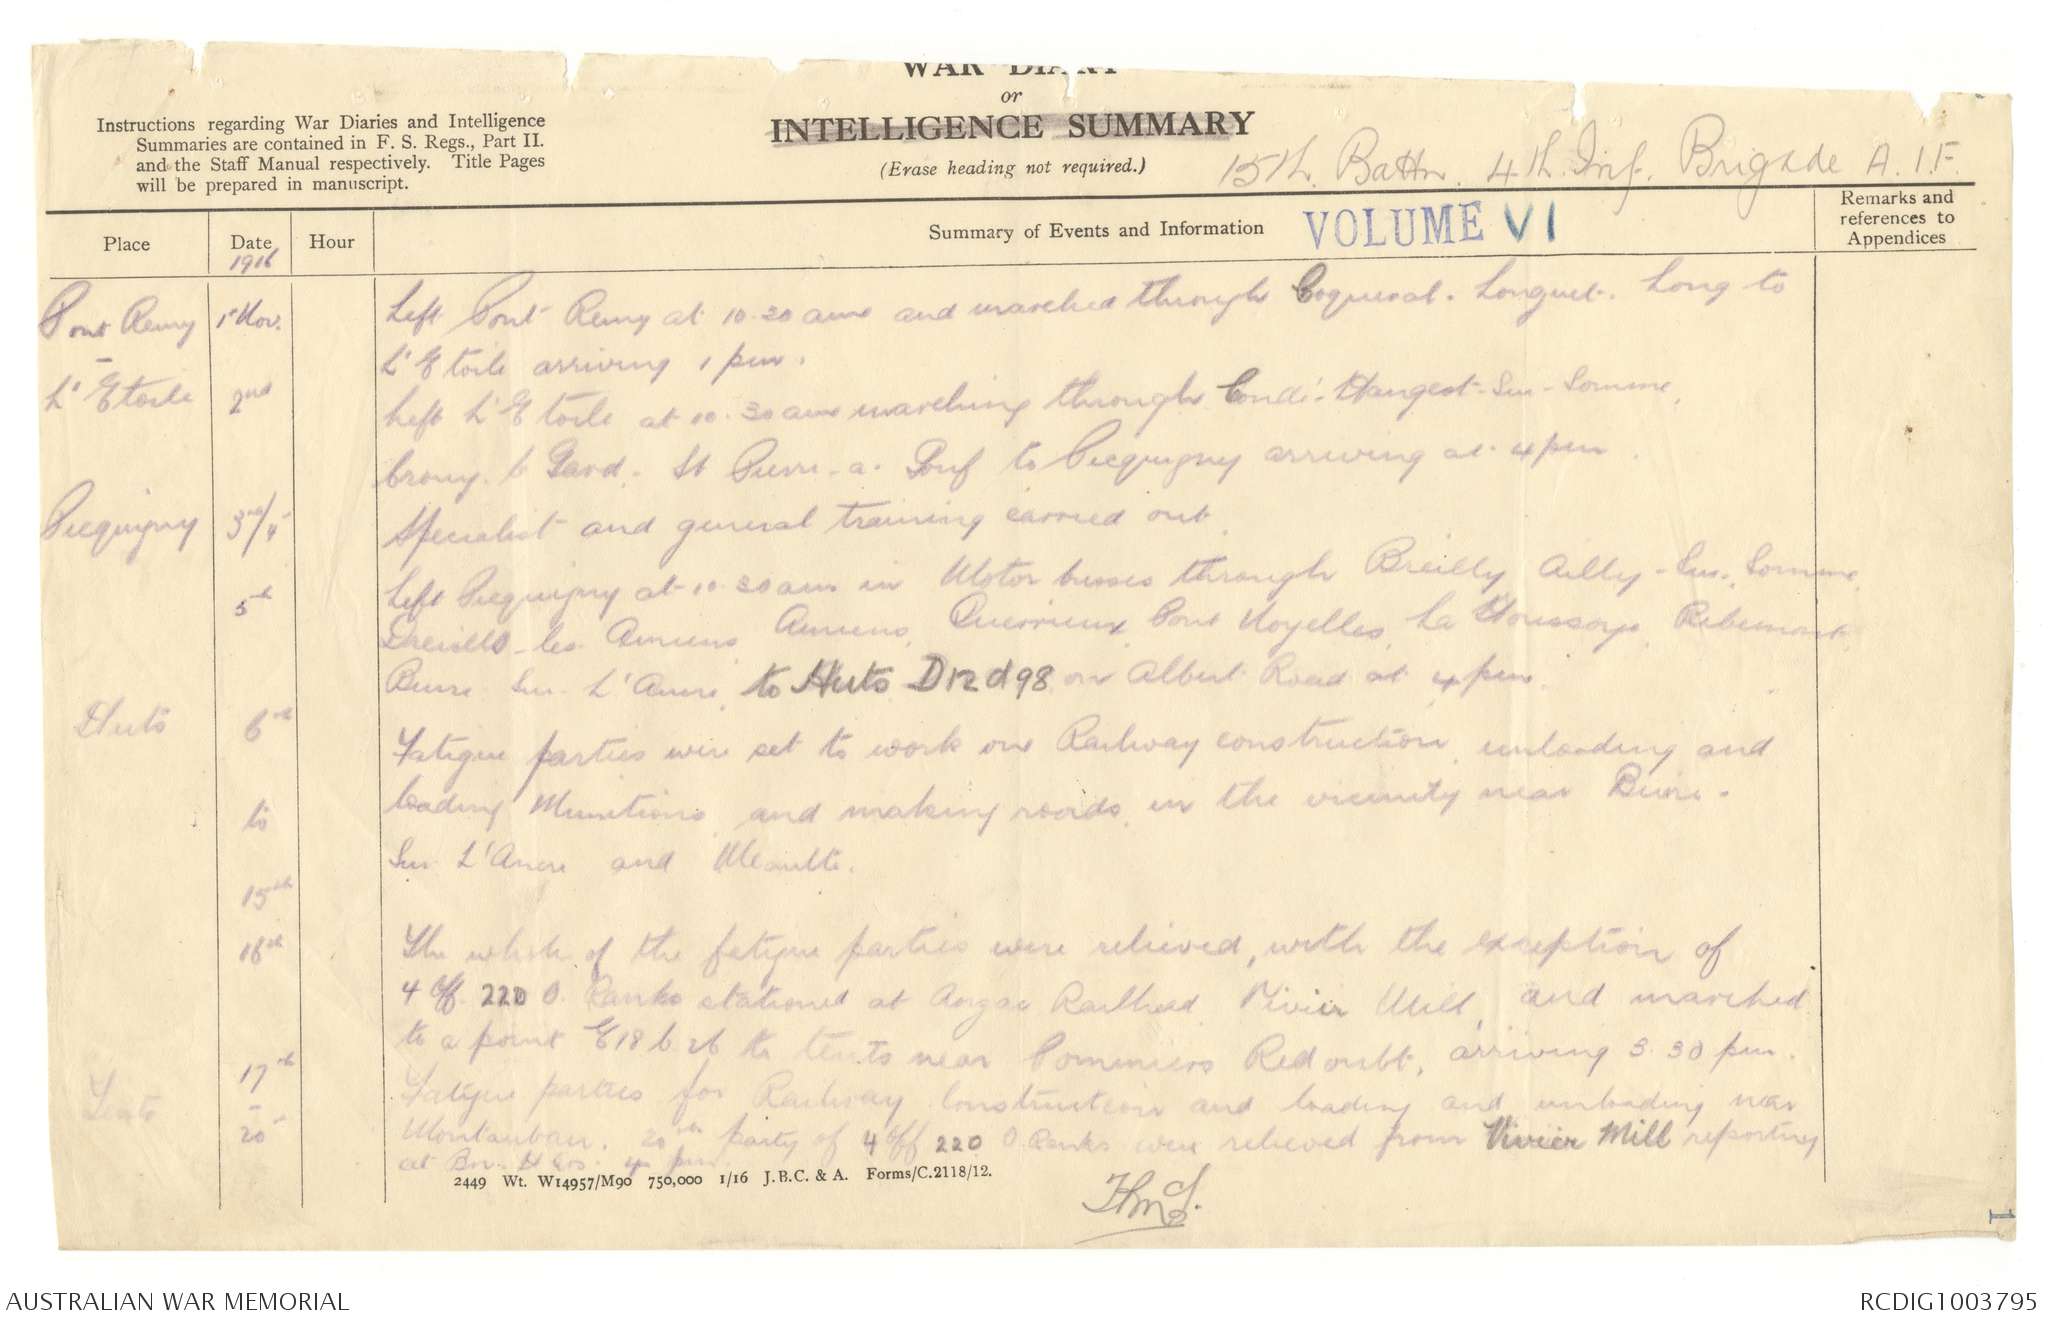 WAR DIARY
or
INTELLIGENCE SUMMARY
(Erase heading not required.)
Instructions regarding War Diaries and Intelligence
Summaries are contained in F. S. Regs., Part II.
and the Staff Manual respectively. Title Pages
will be prepared in manuscript.
15th. Battn. 4th. Inf. Brigade A.I.F.
Place
Date
1916
Hour
Summary of Events and Information
VOLUME VI
Remarks and
references to
Appendices
Pont Remy 1st Nov. Left Pont Remy at 10.30 am and marched through Coquerel. Longuet. Long to
L'Etoile arriving 1 pm.
L'Etoile 2nd Left L'Etoile at 10.30 am marching through Condé. Hangest-Sur-Somme.
Crouy. Gard. St Pierre-a-Gouf to Picquigny arriving at 4 pm.
Picquigny 3rd/4th Specialist and general training carried out.
5th Left Picquigny at 10.30 am in Motor busses through Breilly Ailly-Sur-Somme
Dreuil-les-Amiens Amiens, Querrieux Pont Noyelles, La Houssoye Ribemont
Buire Sur L'Ancre, to Huts D12d98 on Albert Road at 4 pm.
Huts 6th Fatigue parties were set to work on Railway construction, unloading and
to loading Munitions, and making roads, in the vicinity near Buire.
Sur L'Ancre and Meaulte.
15th
16th The whole of the fatigue parties were relieved, with the exception of
4 Off. 220 O. Ranks stationed at Anzac Railhead Vivier Mill, and marched
to a point E18 b.26 to tents near Pommiers Redoubt, arriving 3.30 pm.
Tents 17th - 20th Fatigue parties for Railway Construction and loading and unloading near
Montauban. 20th party of 4 Off 220 O. Ranks were relieved from Vivier Mill reporting
at Bn. H Qrs. 4 pm.
2449 Wt. W14957/M90 750,000 1/16 J.B.C. & A. Forms/C.2118/12.
1
AUSTRALIAN WAR MEMORIAL
RCDIG1003795